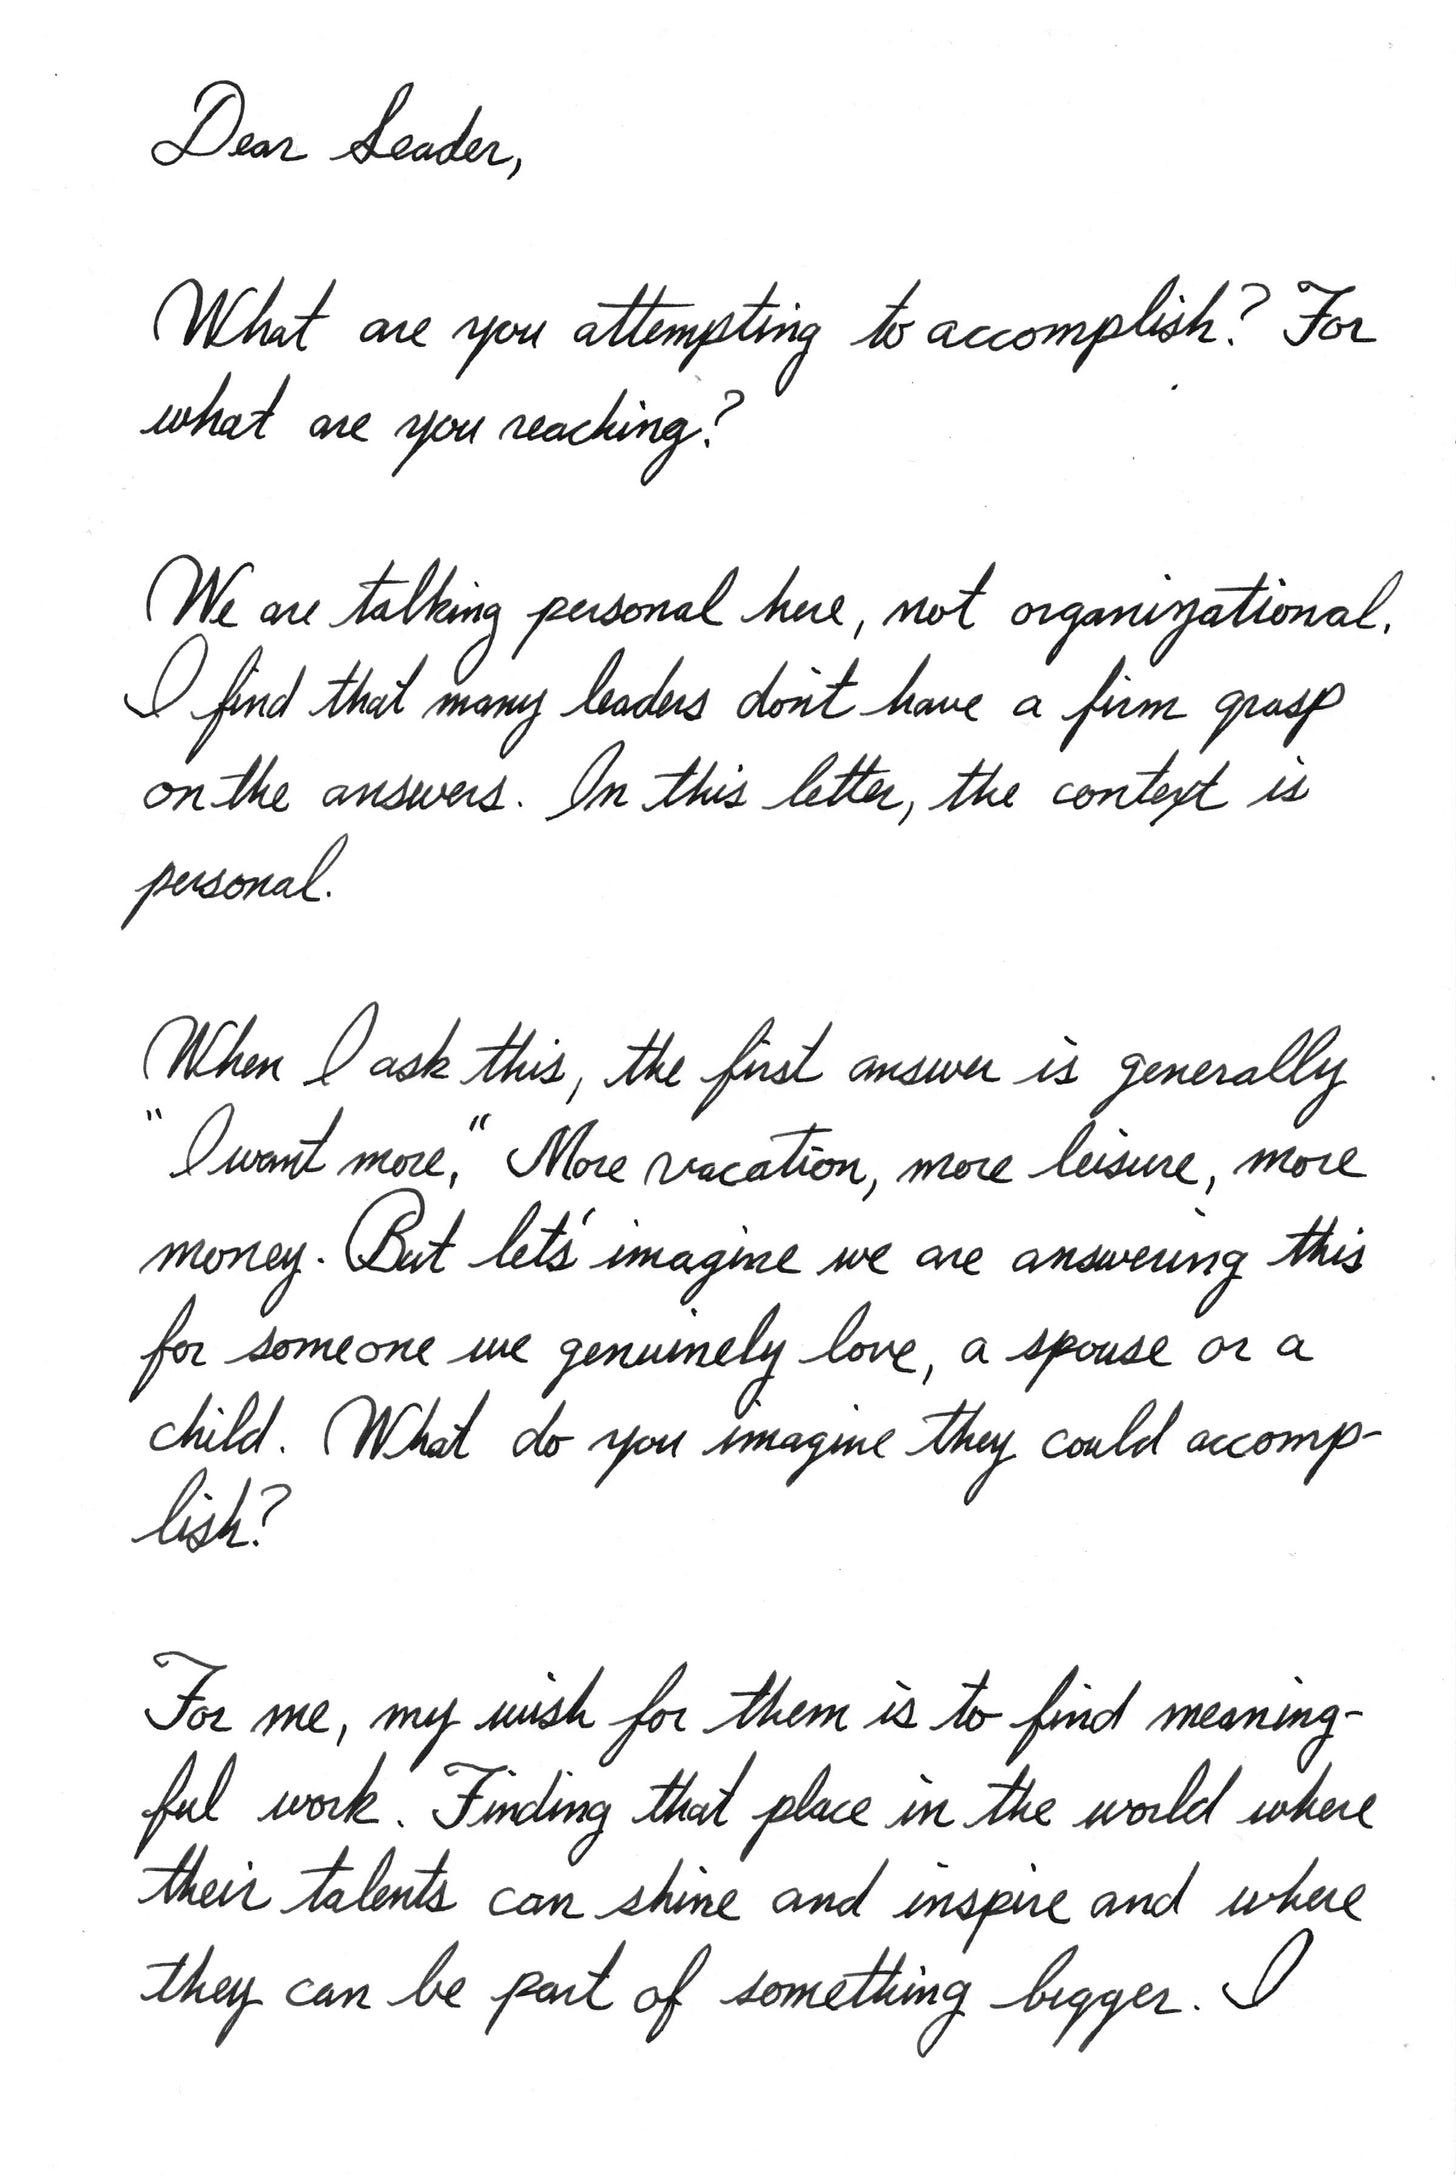 Dear Leader,
What are you attempting to accomplish? For
what are you reaching?
We are talking personal here, not organizational.
I find that many leaders don't have a firm grasp
on the answers. In this letter, the context is
personal.
When I ask this, the first answer is generally
"I want more." More vacation, more leisure, more
money. But let's imagine we are answering this
for someone we genuinely love, a spouse or a
child. What do you imagine they could accomp-
lish?
For me, my wish for them is to find meaning-
ful work. Finding that place in the world where
their talents can shine and inspire and where
they can be part of something bigger. I